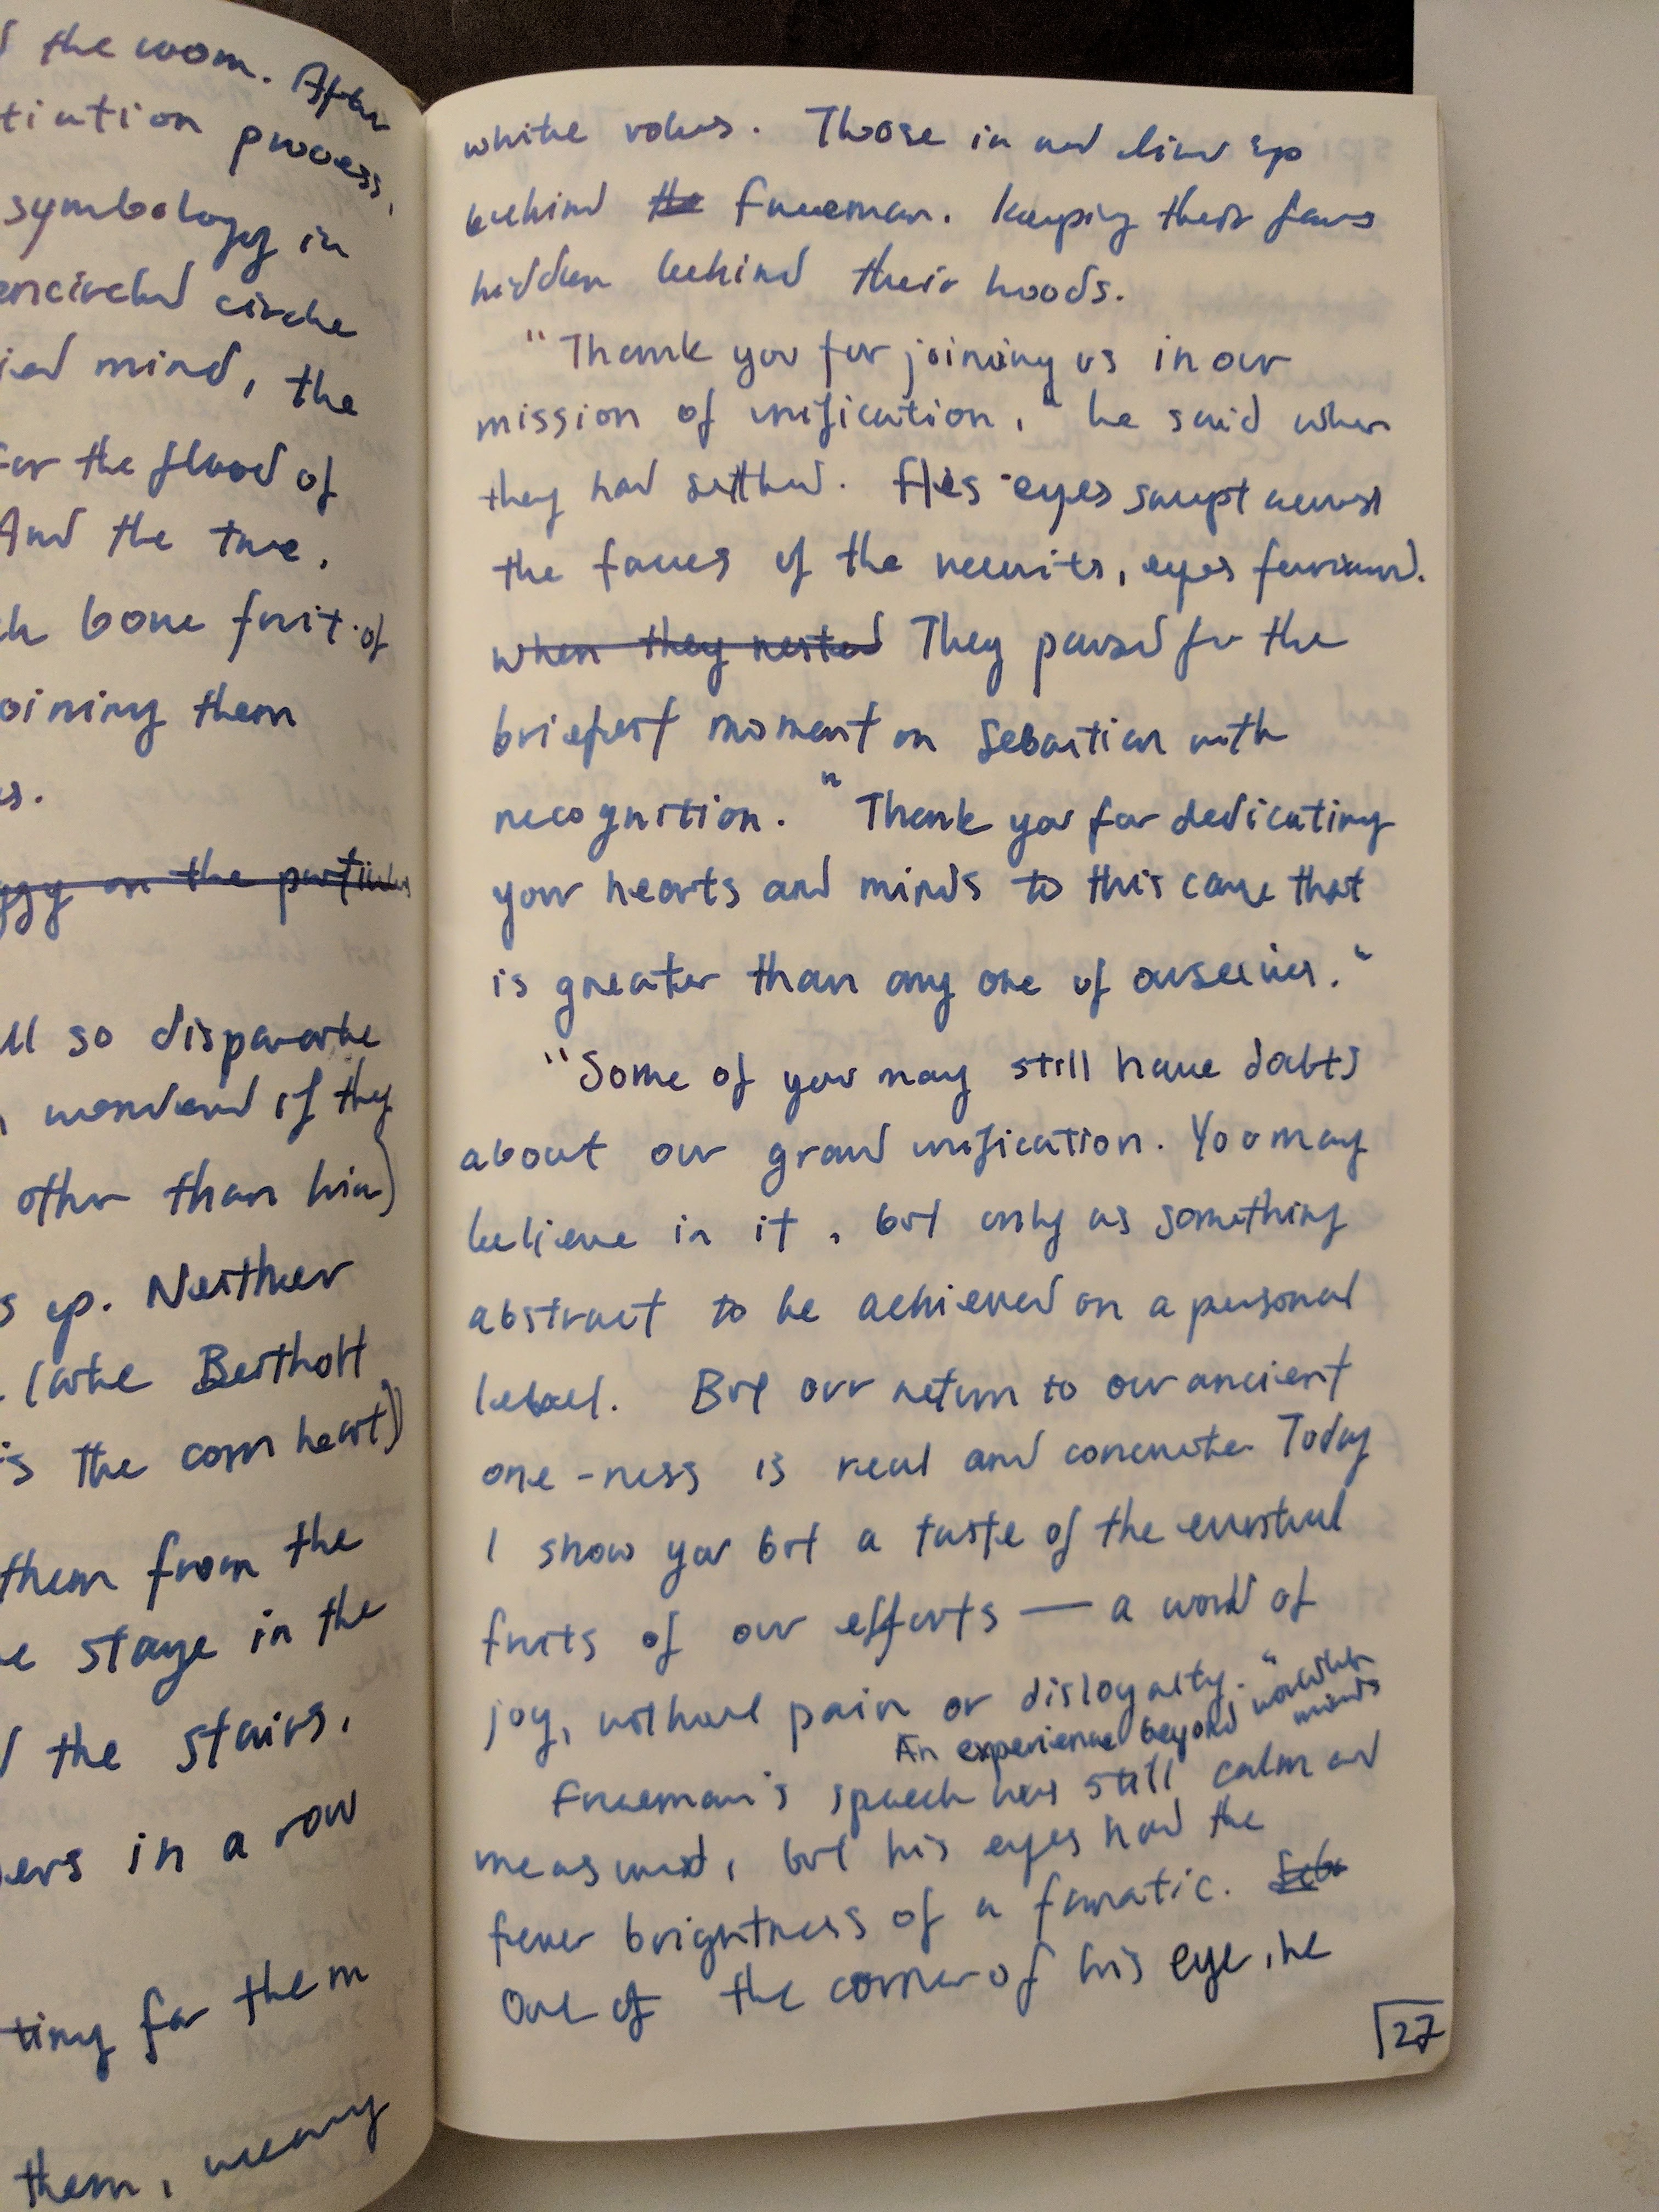 the room. After
tiation process,
symbology in
encircled circle
ied mind, the
for the flood of
And the tree,
ch bore fruit of
oining them
es.
ggy on the particular
ll so disparate
wondered if they
other than him)
s up. Neither
(late Berthott
is the corn heart)
them from the
e stage in the
the stairs.
bers in a row
ting for them
them, weary
white robes. Those in red lined up
behind the Freeman. Keeping their faces
hidden behind their hoods.
"Thank you for joining us in our
mission of unification," he said when
they had settled. His eyes swept across
the faces of the recruits, eyes
when they rested They paused for the
briefest moment on Sebastian with
recognition. "Thank you for dedicating
your hearts and minds to this cause that
is greater than any one of ourselves."
"Some of you may still have dobts
about our grand unification. You may
believe in it, but only as something
abstract to be achieved on a personal
level. But our return to our ancient
one-ness is real and concrete. Today
I show you but a taste of the eventual
fruits of our efforts — a world of
joy, without pain or disloyalty."
An experience beyond worldly minds
Freeman's speech was still calm and
measured, but his eyes had the
fever brightness of a fanatic. Seba
Out of the corner of his eye, he
27